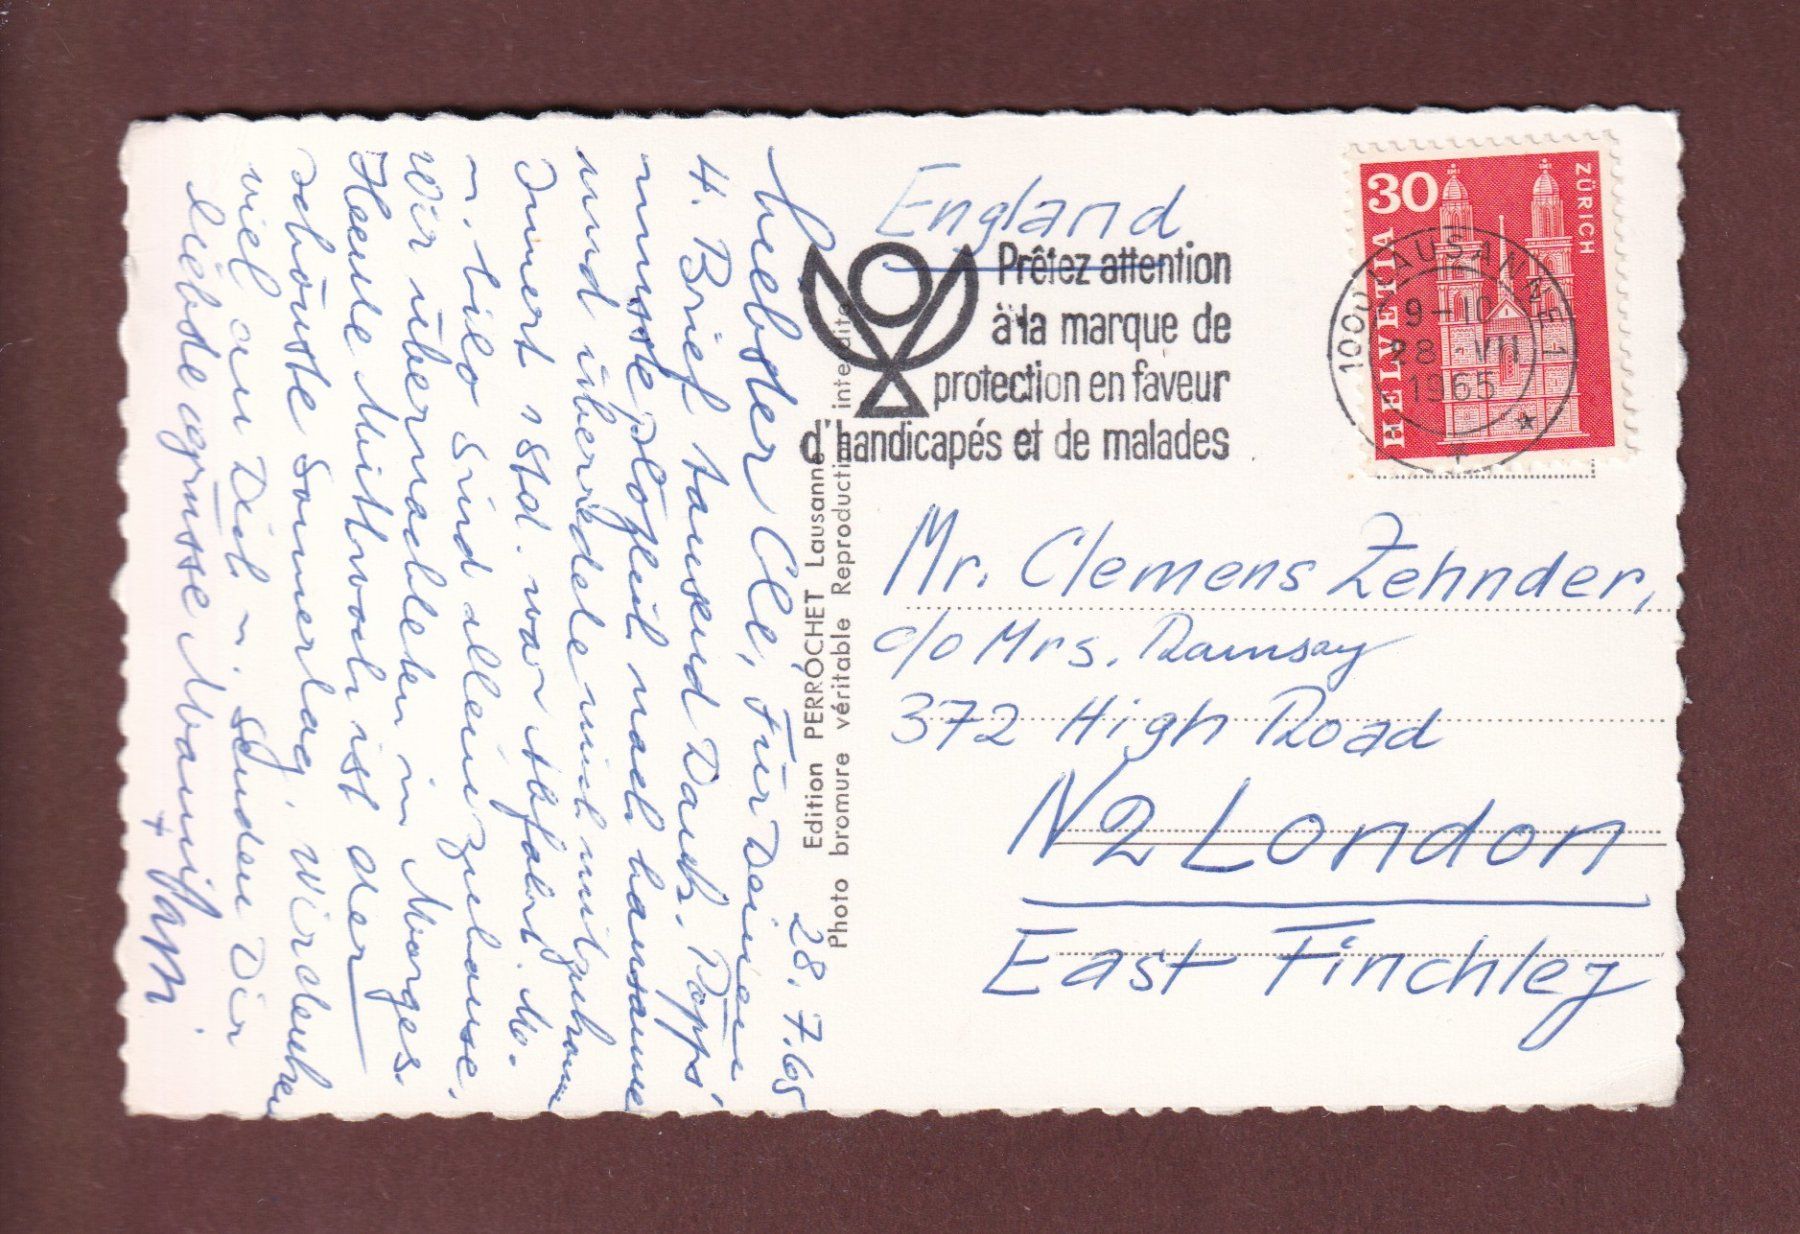 28. 7.65
Liebster Cle, Für Deinen
4. Brief tausend Dank. Pappi
musste plötzlich nach Lausanne
und überredete mich mitzukommen
Innert 1 Std. war Abfahrt. Mo.
n. Lilo sind allein zuhause.
Wir übernachteten in Morges.
Heute Mittwoch ist der
schönste Sommertag. Wir denken
viel an Dich u. senden Dir
liebste Grüsse Mami
+ Papi
Edition PERROCHET Lausanne
Photo bromure véritable Reproduction interdite
England
Prêtez attention
à la marque de
protection en faveur
d'handicapés et de malades
30
HELVETIA
ZÜRICH
1000 LAUSANNE 1
9-10
28 VII
1965
Mr. Clemens Zehnder,
c/o Mrs. Ramsay
372 High Road
N2 London
East Finchley